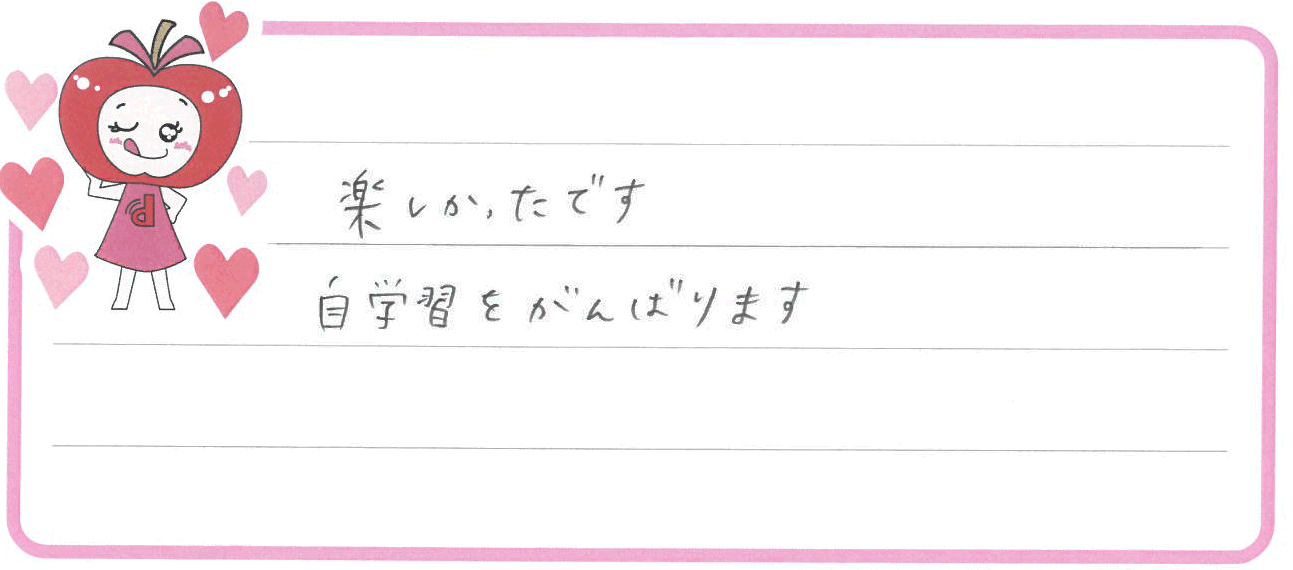 楽しかったです
自学習をがんばります